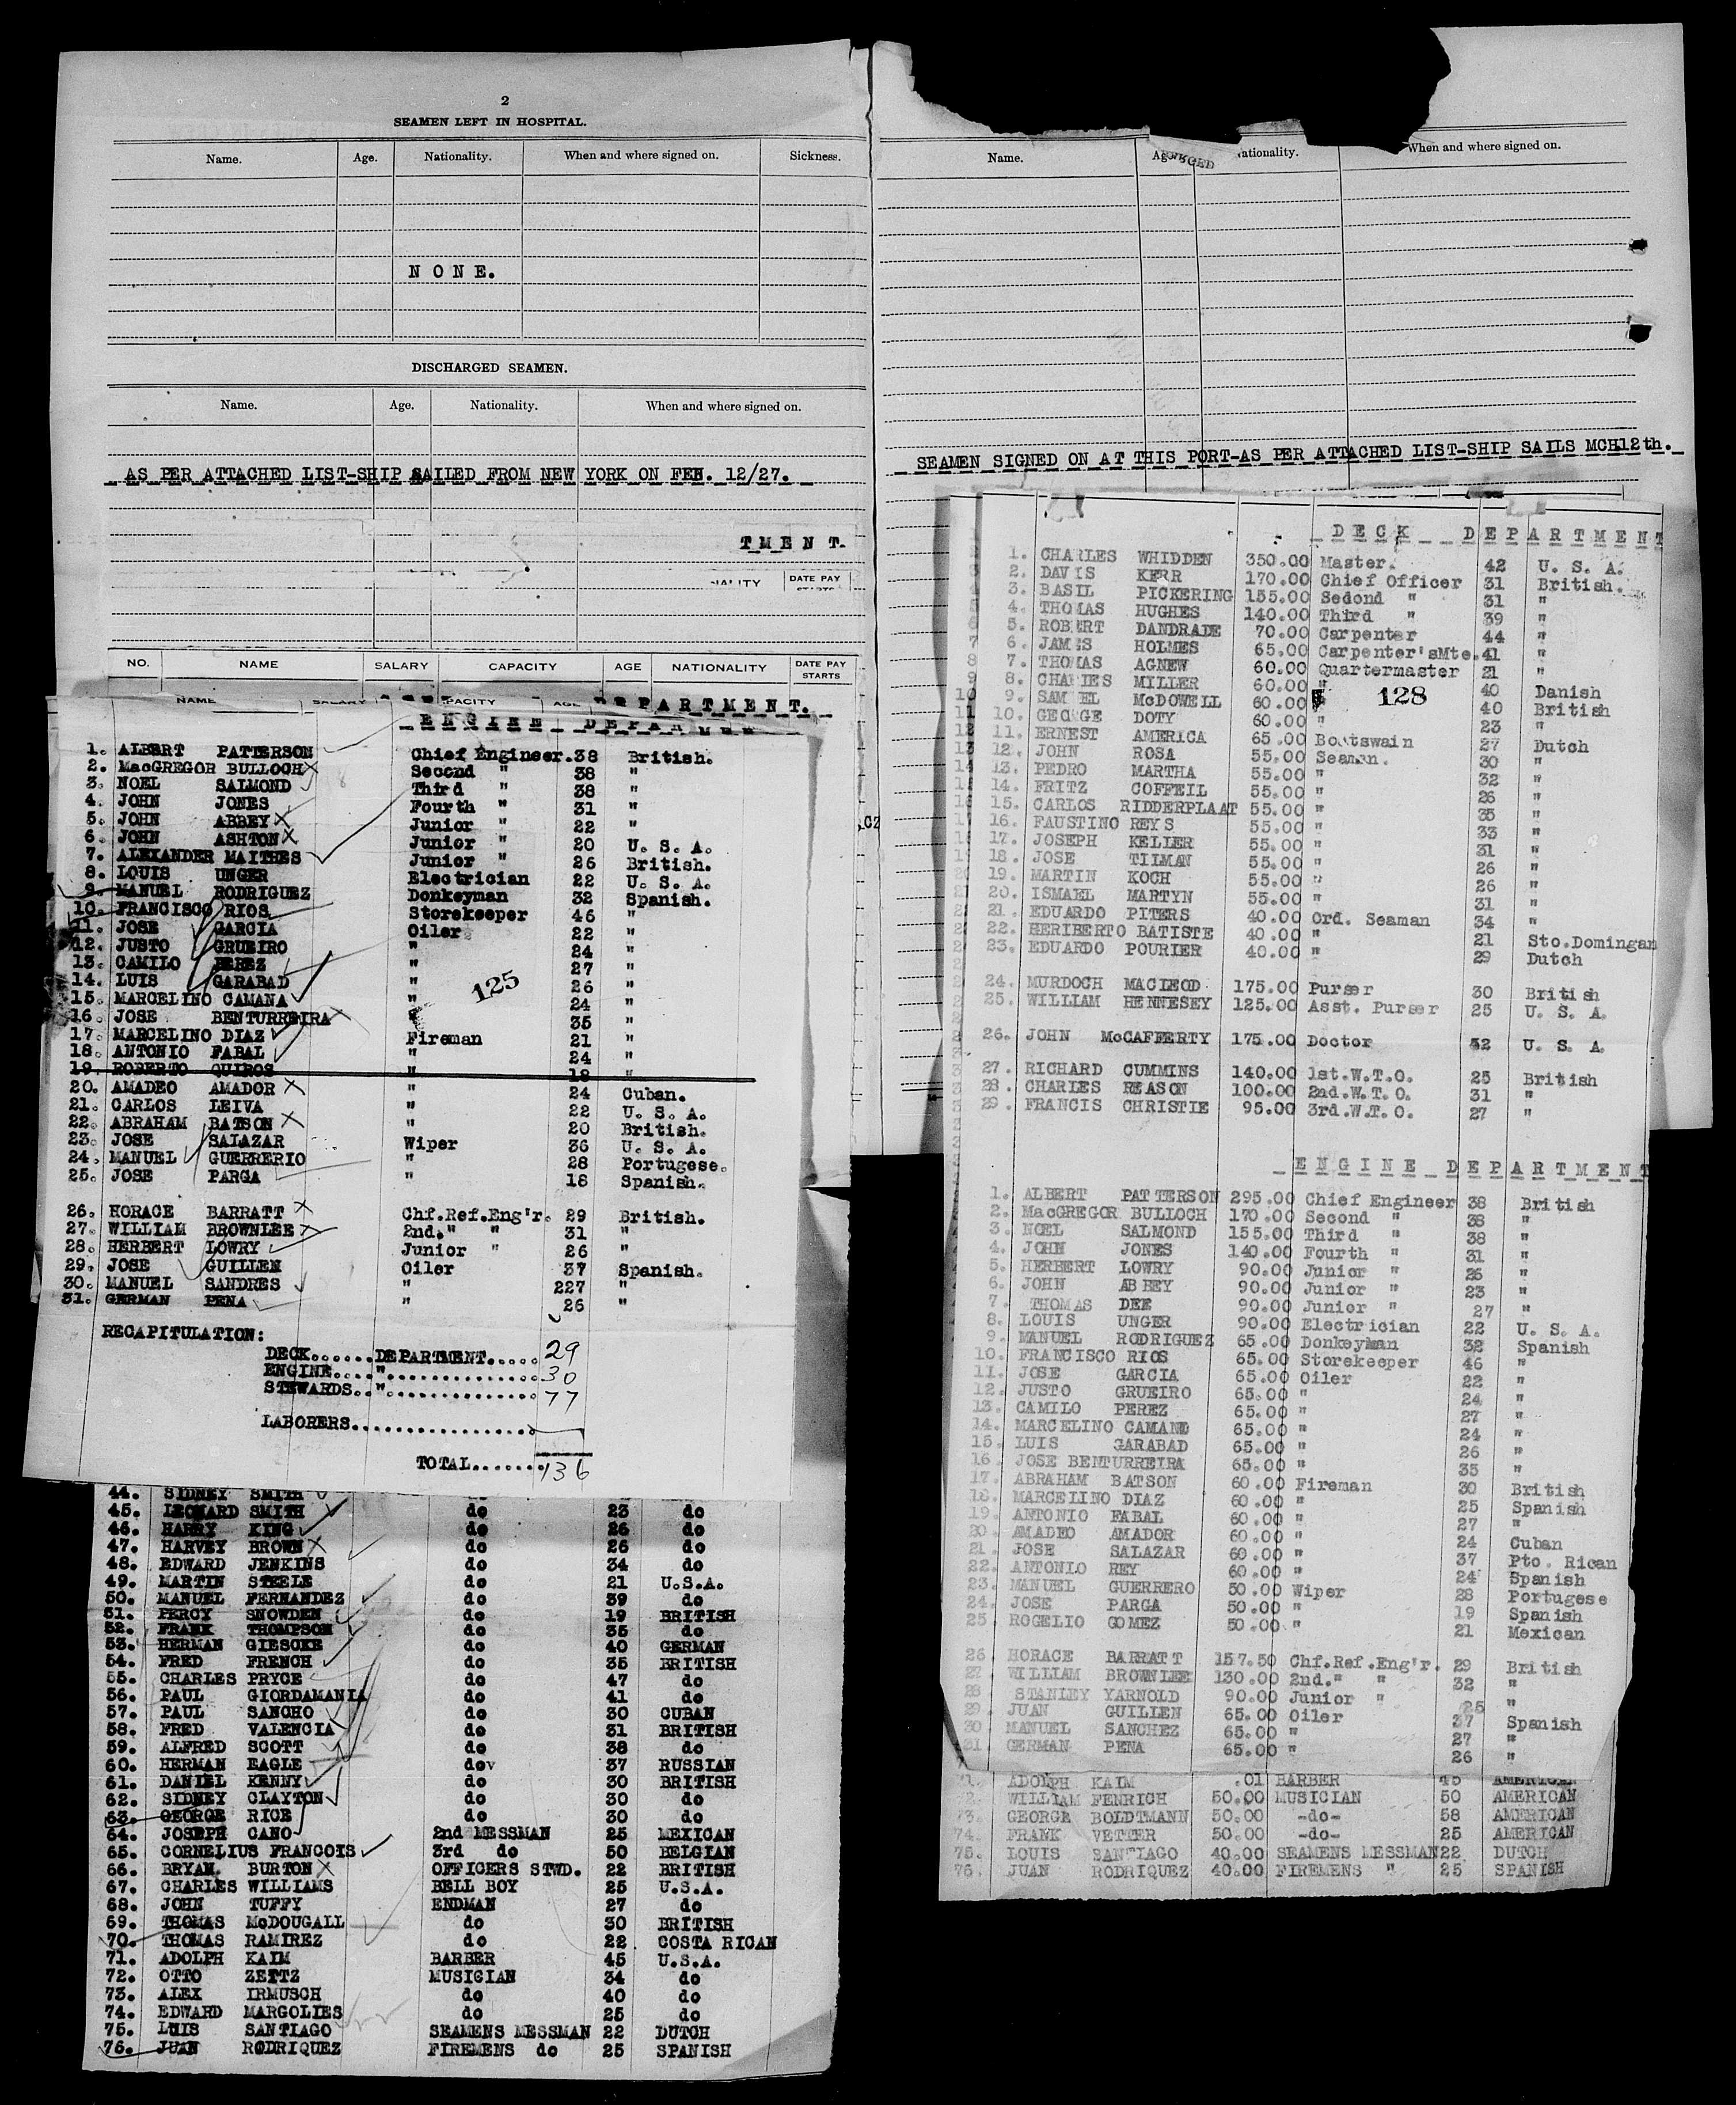 2
SEAMEN LEFT IN HOSPITAL.
Name. Age. Nationality. When and where signed on. Sickness.
NONE.
DISCHARGED SEAMEN.
Name. Age. Nationality. When and where signed on.
AS PER ATTACHED LIST-SHIP SAILED FROM NEW YORK ON FEB. 12/27.
TMENT.
DATE PAY
NO. NAME SALARY CAPACITY AGE NATIONALITY DATE PAY STARTS
NAME PACITY DEPARTMENT.
ENGINE DEPARTMENT
1. ALBERT PATTERSON Chief Engineer.38 British.
2. MacGREGOR BULLOCH X Second " 38 "
3. NOEL SALMOND Third " 38 "
4. JOHN JONES Fourth " 31 "
5. JOHN ABBEY X Junior " 22 "
6. JOHN ASHTON X Junior " 20 U. S. A.
7. ALEXANDER MAITHES Junior " 26 British.
8. LOUIS UNGER Electrician 22 U. S. A.
9. MANUEL RODRIGUEZ Donkeyman 32 Spanish.
10. FRANCISCO RIOS Storekeeper 46 "
11. JOSE GARCIA Oiler 22 "
12. JUSTO GRUEIRO " 24 "
13. CAMILO PEREZ " 27 "
14. LUIS GARABAD " 26 "
125
15. MARCELINO CAMANA " 24 "
16. JOSE BENTURREIRA " 35 "
17. MARCELINO DIAZ Fireman 21 "
18. ANTONIO FABAL " 24 "
19. ROBERTO QUIROS " 18 "
20. AMADEO AMADOR X " 24 Cuban.
21. CARLOS LEIVA " 22 U. S. A.
22. ABRAHAM BATSON X " 20 British.
23. JOSE SALAZAR Wiper 36 U. S. A.
24. MANUEL GUERRERIO " 28 Portugese.
25. JOSE PARGA " 18 Spanish.
26. HORACE BARRATT X Chf.Ref.Eng'r. 29 British.
27. WILLIAM BROWNLEE X 2nd." " 31 "
28. HERBERT LOWRY Junior " 26 "
29. JOSE GUILLEN Oiler 37 Spanish.
30. MANUEL SANDRES " 227 "
31. GERMAN PENA " 26 "
RECAPITULATION:
DECK......DEPARTMENT..... 29
ENGINE...."............... 30
STEWARDS.."............... 77
LABORERS..................
TOTAL....... 136
44. SIDNEY SMITH
45. LEONARD SMITH do 23 do
46. HARRY KING do 26 do
47. HARVEY BROWN X do 26 do
48. EDWARD JENKINS do 34 do
49. MARTIN STEELE do 21 U.S.A.
50. MANUEL FERNANDEZ do 39 do
51. PERCY SNOWDEN do 19 BRITISH
52. FRANK THOMPSON do 35 do
53. HERMAN GIESCKE do 40 GERMAN
54. FRED FRENCH do 35 BRITISH
55. CHARLES PRYCE do 47 do
56. PAUL GIORDAMANIA do 41 do
57. PAUL SANCHO do 30 CUBAN
58. FRED VALENCIA do 31 BRITISH
59. ALFRED SCOTT do 38 do
60. HERMAN EAGLE do 37 RUSSIAN
61. DANIEL KENNY do 30 BRITISH
62. SIDNEY CLAYTON do 30 do
63. GEORGE RICE do 30 do
64. JOSEPH CANO 2nd MESSMAN 25 MEXICAN
65. CORNELIUS FRANCOIS 3rd do 50 BELGIAN
66. BRYAN BURTON X OFFICERS STWD. 22 BRITISH
67. CHARLES WILLIAMS BELL BOY 25 U.S.A.
68. JOHN TUFFY ENDMAN 27 do
69. THOMAS McDOUGALL do 30 BRITISH
70. THOMAS RAMIREZ do 22 COSTA RICAN
71. ADOLPH KAIM BARBER 45 U.S.A.
72. OTTO ZEITZ MUSICIAN 34 do
73. ALEX IRMUSCH do 40 do
74. EDWARD MARGOLIES do 25 do
75. LUIS SANTIAGO SEAMENS MESSMAN 22 DUTCH
76. JUAN RODRIQUEZ FIREMENS do 25 SPANISH
Name. Nationality. When and where signed on.
SEAMEN SIGNED ON AT THIS PORT-AS PER ATTACHED LIST-SHIP SAILS MCH12th.
DECK DEPARTMENT
1. CHARLES WHIDDEN 350.00 Master. 42 U. S. A.
2. DAVIS KERR 170.00 Chief Officer 31 British.
3. BASIL PICKERING 155.00 Sedond " 31 "
4. THOMAS HUGHES 140.00 Third " 39 "
5. ROBERT DANDRADE 70.00 Carpenter 44 "
6. JAMES HOLMES 65.00 Carpenter'sMte.41 "
7. THOMAS AGNEW 60.00 Quartermaster 21 "
8. CHARLES MILLER 60.00 " 40 Danish
128
9. SAMUEL McDOWELL 60.00 " 40 British
10. GEORGE DOTY 60.00 " 23 "
11. ERNEST AMERICA 65.00 Boatswain 27 Dutch
12. JOHN ROSA 55.00 Seaman. 30 "
13. PEDRO MARTHA 55.00 " 32 "
14. FRITZ COFFEIL 55.00 " 26 "
15. CARLOS RIDDERPLAAT 55.00 " 35 "
16. FAUSTINO REYS 55.00 " 33 "
17. JOSEPH KELLER 55.00 " 31 "
18. JOSE TILMAN 55.00 " 26 "
19. MARTIN KOCH 55.00 " 26 "
20. ISMAEL MARTYN 55.00 " 31 "
21. EDUARDO PITERS 40.00 Ord. Seaman 34 "
22. HERIBERTO BATISTE 40.00 " 21 Sto.Domingan
23. EDUARDO POURIER 40.00 " 29 Dutch
24. MURDOCH MACLEOD 175.00 Purser 30 British
25. WILLIAM HENNESEY 125.00 Asst. Purser 25 U. S. A.
26. JOHN McCAFFERTY 175.00 Doctor 52 U. S. A.
27. RICHARD CUMMINS 140.00 1st.W.T.O. 25 British
28. CHARLES REASON 100.00 2nd.W.T.O. 31 "
29. FRANCIS CHRISTIE 95.00 3rd.W.T.O. 27 "
ENGINE DEPARTMENT
1. ALBERT PATTERSON 295.00 Chief Engineer 38 British
2. MacGREGOR BULLOCH 170.00 Second " 38 "
3. NOEL SALMOND 155.00 Third " 38 "
4. JOHN JONES 140.00 Fourth " 31 "
5. HERBERT LOWRY 90.00 Junior " 26 "
6. JOHN ABBEY 90.00 Junior " 23 "
7. THOMAS DEE 90.00 Junior " 27 "
8. LOUIS UNGER 90.00 Electrician 22 U. S. A.
9. MANUEL RODRIGUEZ 65.00 Donkeyman 32 Spanish
10. FRANCISCO RIOS 65.00 Storekeeper 46 "
11. JOSE GARCIA 65.00 Oiler 22 "
12. JUSTO GRUEIRO 65.00 " 24 "
13. CAMILO PEREZ 65.00 " 27 "
14. MARCELINO CAMANE 65.00 " 24 "
15. LUIS GARABAD 65.00 " 26 "
16. JOSE BENTURREIRA 65.00 " 35 "
17. ABRAHAM BATSON 60.00 Fireman 30 British
18. MARCELINO DIAZ 60.00 " 25 Spanish
19. ANTONIO FABAL 60.00 " 27 "
20. AMADEO AMADOR 60.00 " 24 Cuban
21. JOSE SALAZAR 60.00 " 37 Pto. Rican
22. ANTONIO REY 60.00 " 24 Spanish
23. MANUEL GUERRERO 50.00 Wiper 28 Portugese
24. JOSE PARGA 50.00 " 19 Spanish
25 ROGELIO GOMEZ 50.00 " 21 Mexican
26 HORACE BARRATT 157.50 Chf.Ref.Eng'r. 29 British
27 WILLIAM BROWNLEE 130.00 2nd." " 32 "
28 STANLEY YARNOLD 90.00 Junior " 25 "
29 JUAN GUILLEN 65.00 Oiler 37 Spanish
30 MANUEL SANCHEZ 65.00 " 27 "
31 GERMAN PENA 65.00 " 26 "
71. ADOLPH KAIM .01 BARBER 45 AMERICAN
72. WILLIAM FENRICH 50.00 MUSICIAN 50 AMERICAN
73. GEORGE BOLDTMANN 50.00 -do- 58 AMERICAN
74. FRANK VETTER 50.00 -do- 25 AMERICAN
75. LOUIS SANTIAGO 40.00 SEAMENS MESSMAN22 DUTCH
76. JUAN RODRIQUEZ 40.00 FIREMENS " 25 SPANISH